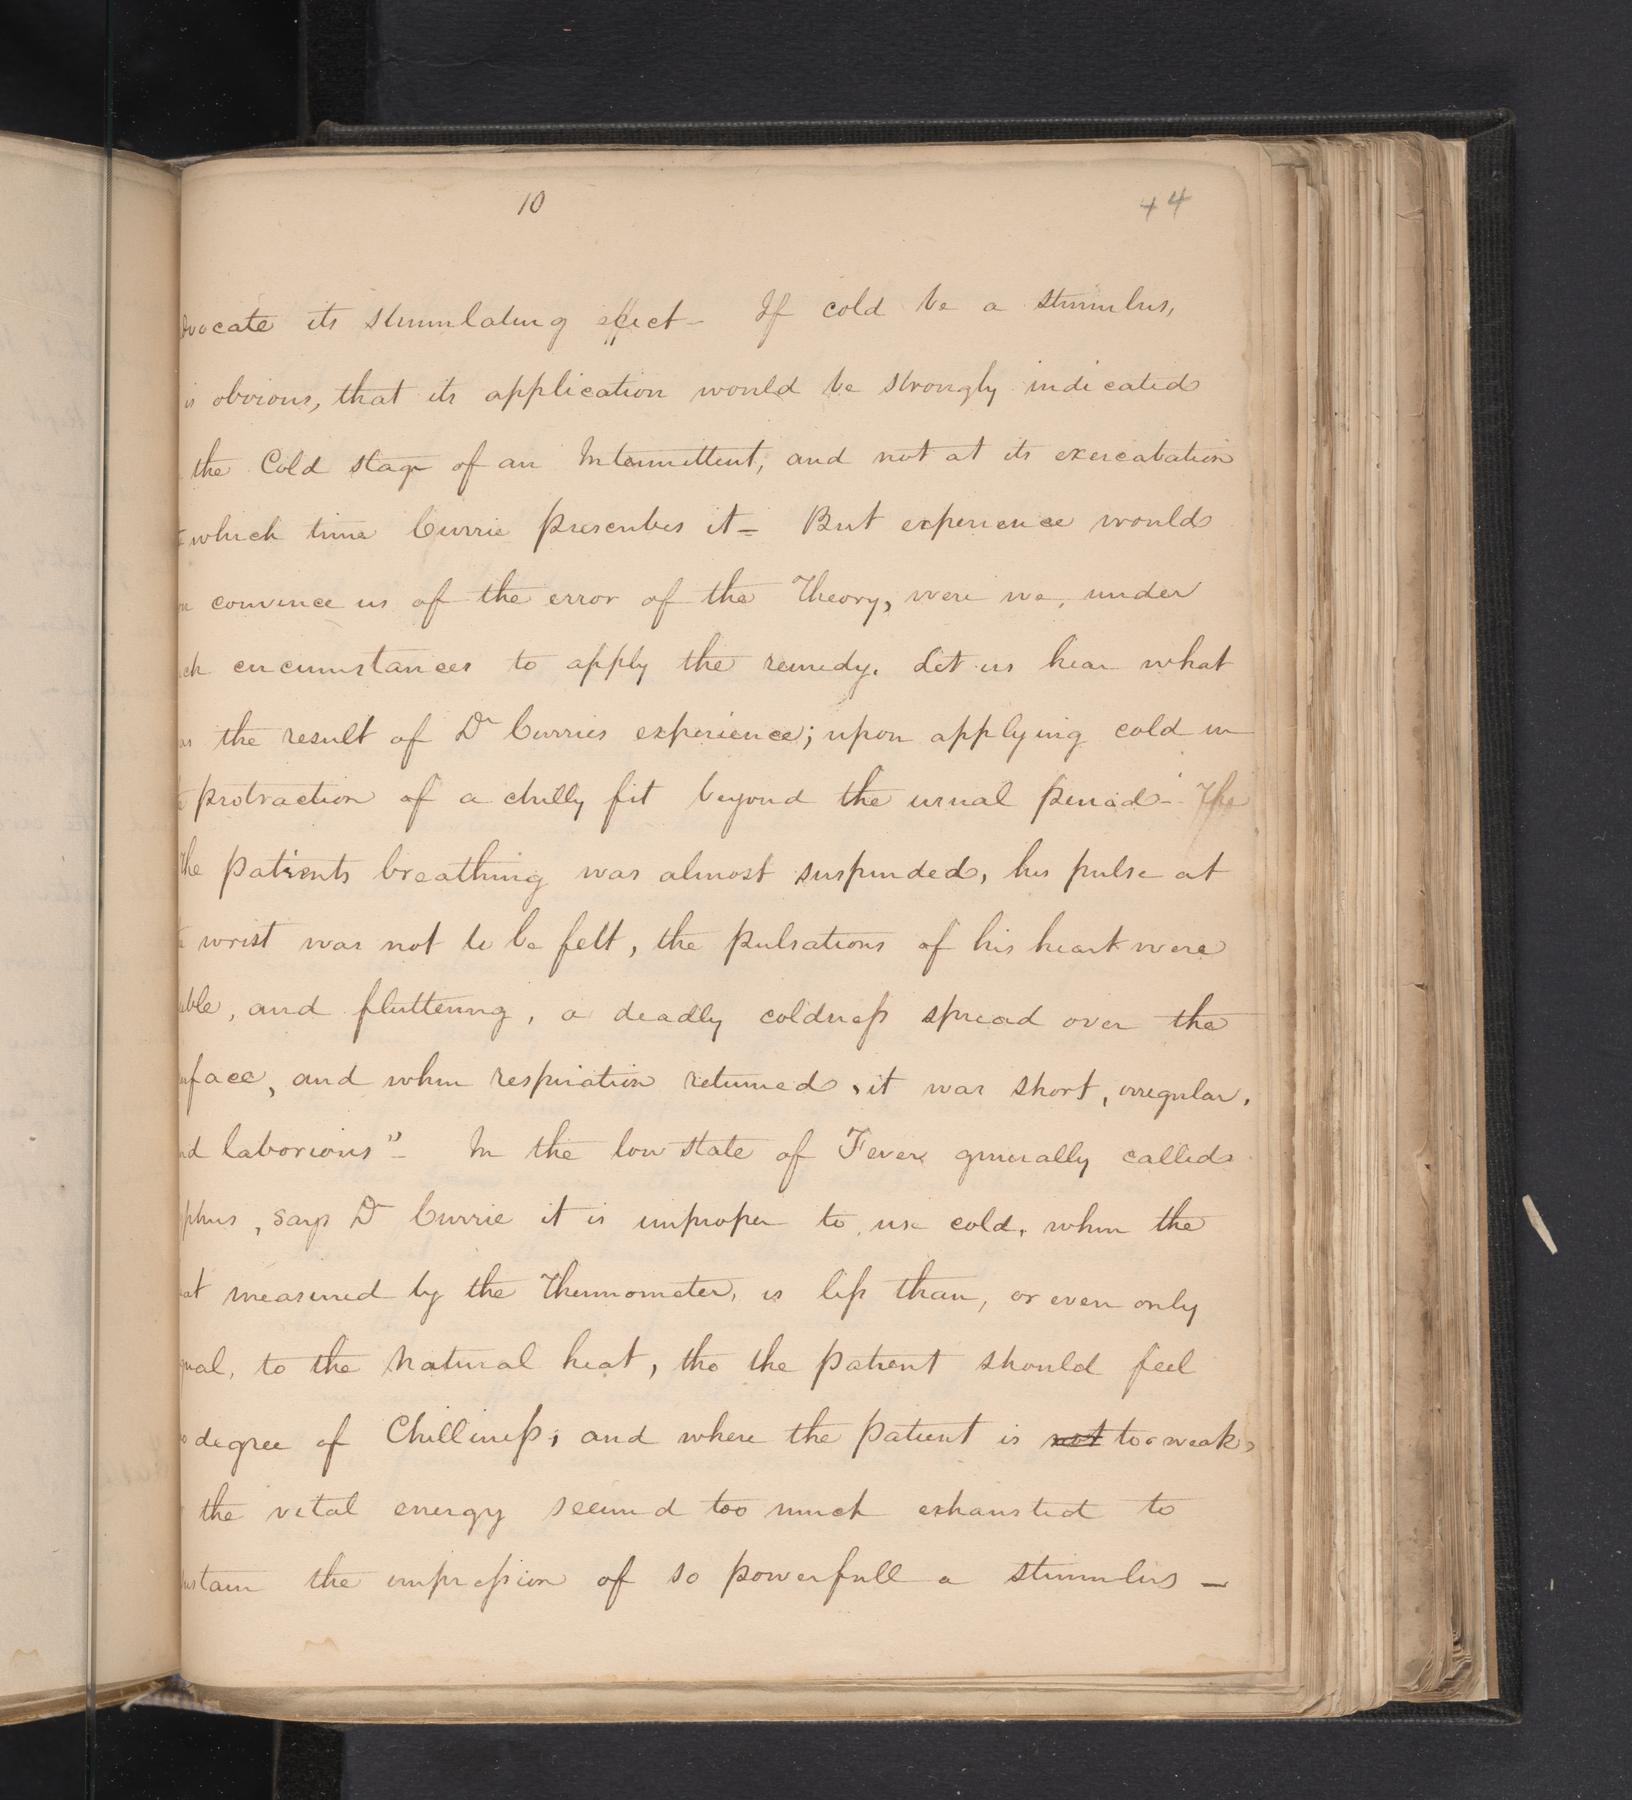 10
44
dvocate its stimulating effect - If cold be a stimulus,
is obvious, that its application would be strongly indicated
the Cold stage of an Intermittent, and not at its exercabation
which time Currie prescribes it - But experience would
convince us of the error of the Theory, were we, under
ch circumstances to apply the remedy. Let us hear what
as the result of Dr Curries experience; upon applying cold in
protraction of a chilly fit beyond the usual period - " The
the patients breathing was almost suspended, his pulse at
wrist was not to be felt, the pulsations of his heart were
eble, and fluttering, a deadly coldness spread over the
urface, and when respiration returned, it was short, irregular,
nd laborious" - In the low state of Fever generally called
phus, says Dr Currie it is improper to use cold, when the
at measured by the Thermometer, is less than, or even only
qual, to the natural heat, tho the patient should feel
o degree of Chilliness; and where the patient is not too weak,
the vital energy seemed too much exhausted to
ustain the impression of so powerfull a stimulus -